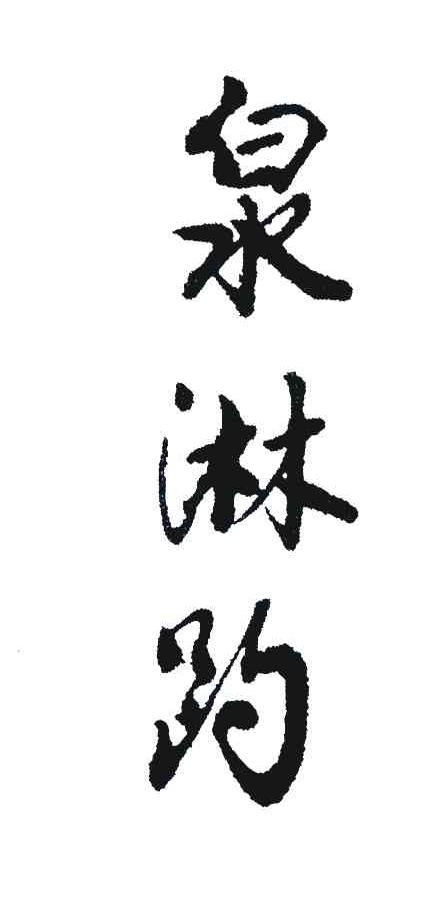 泉淋趵